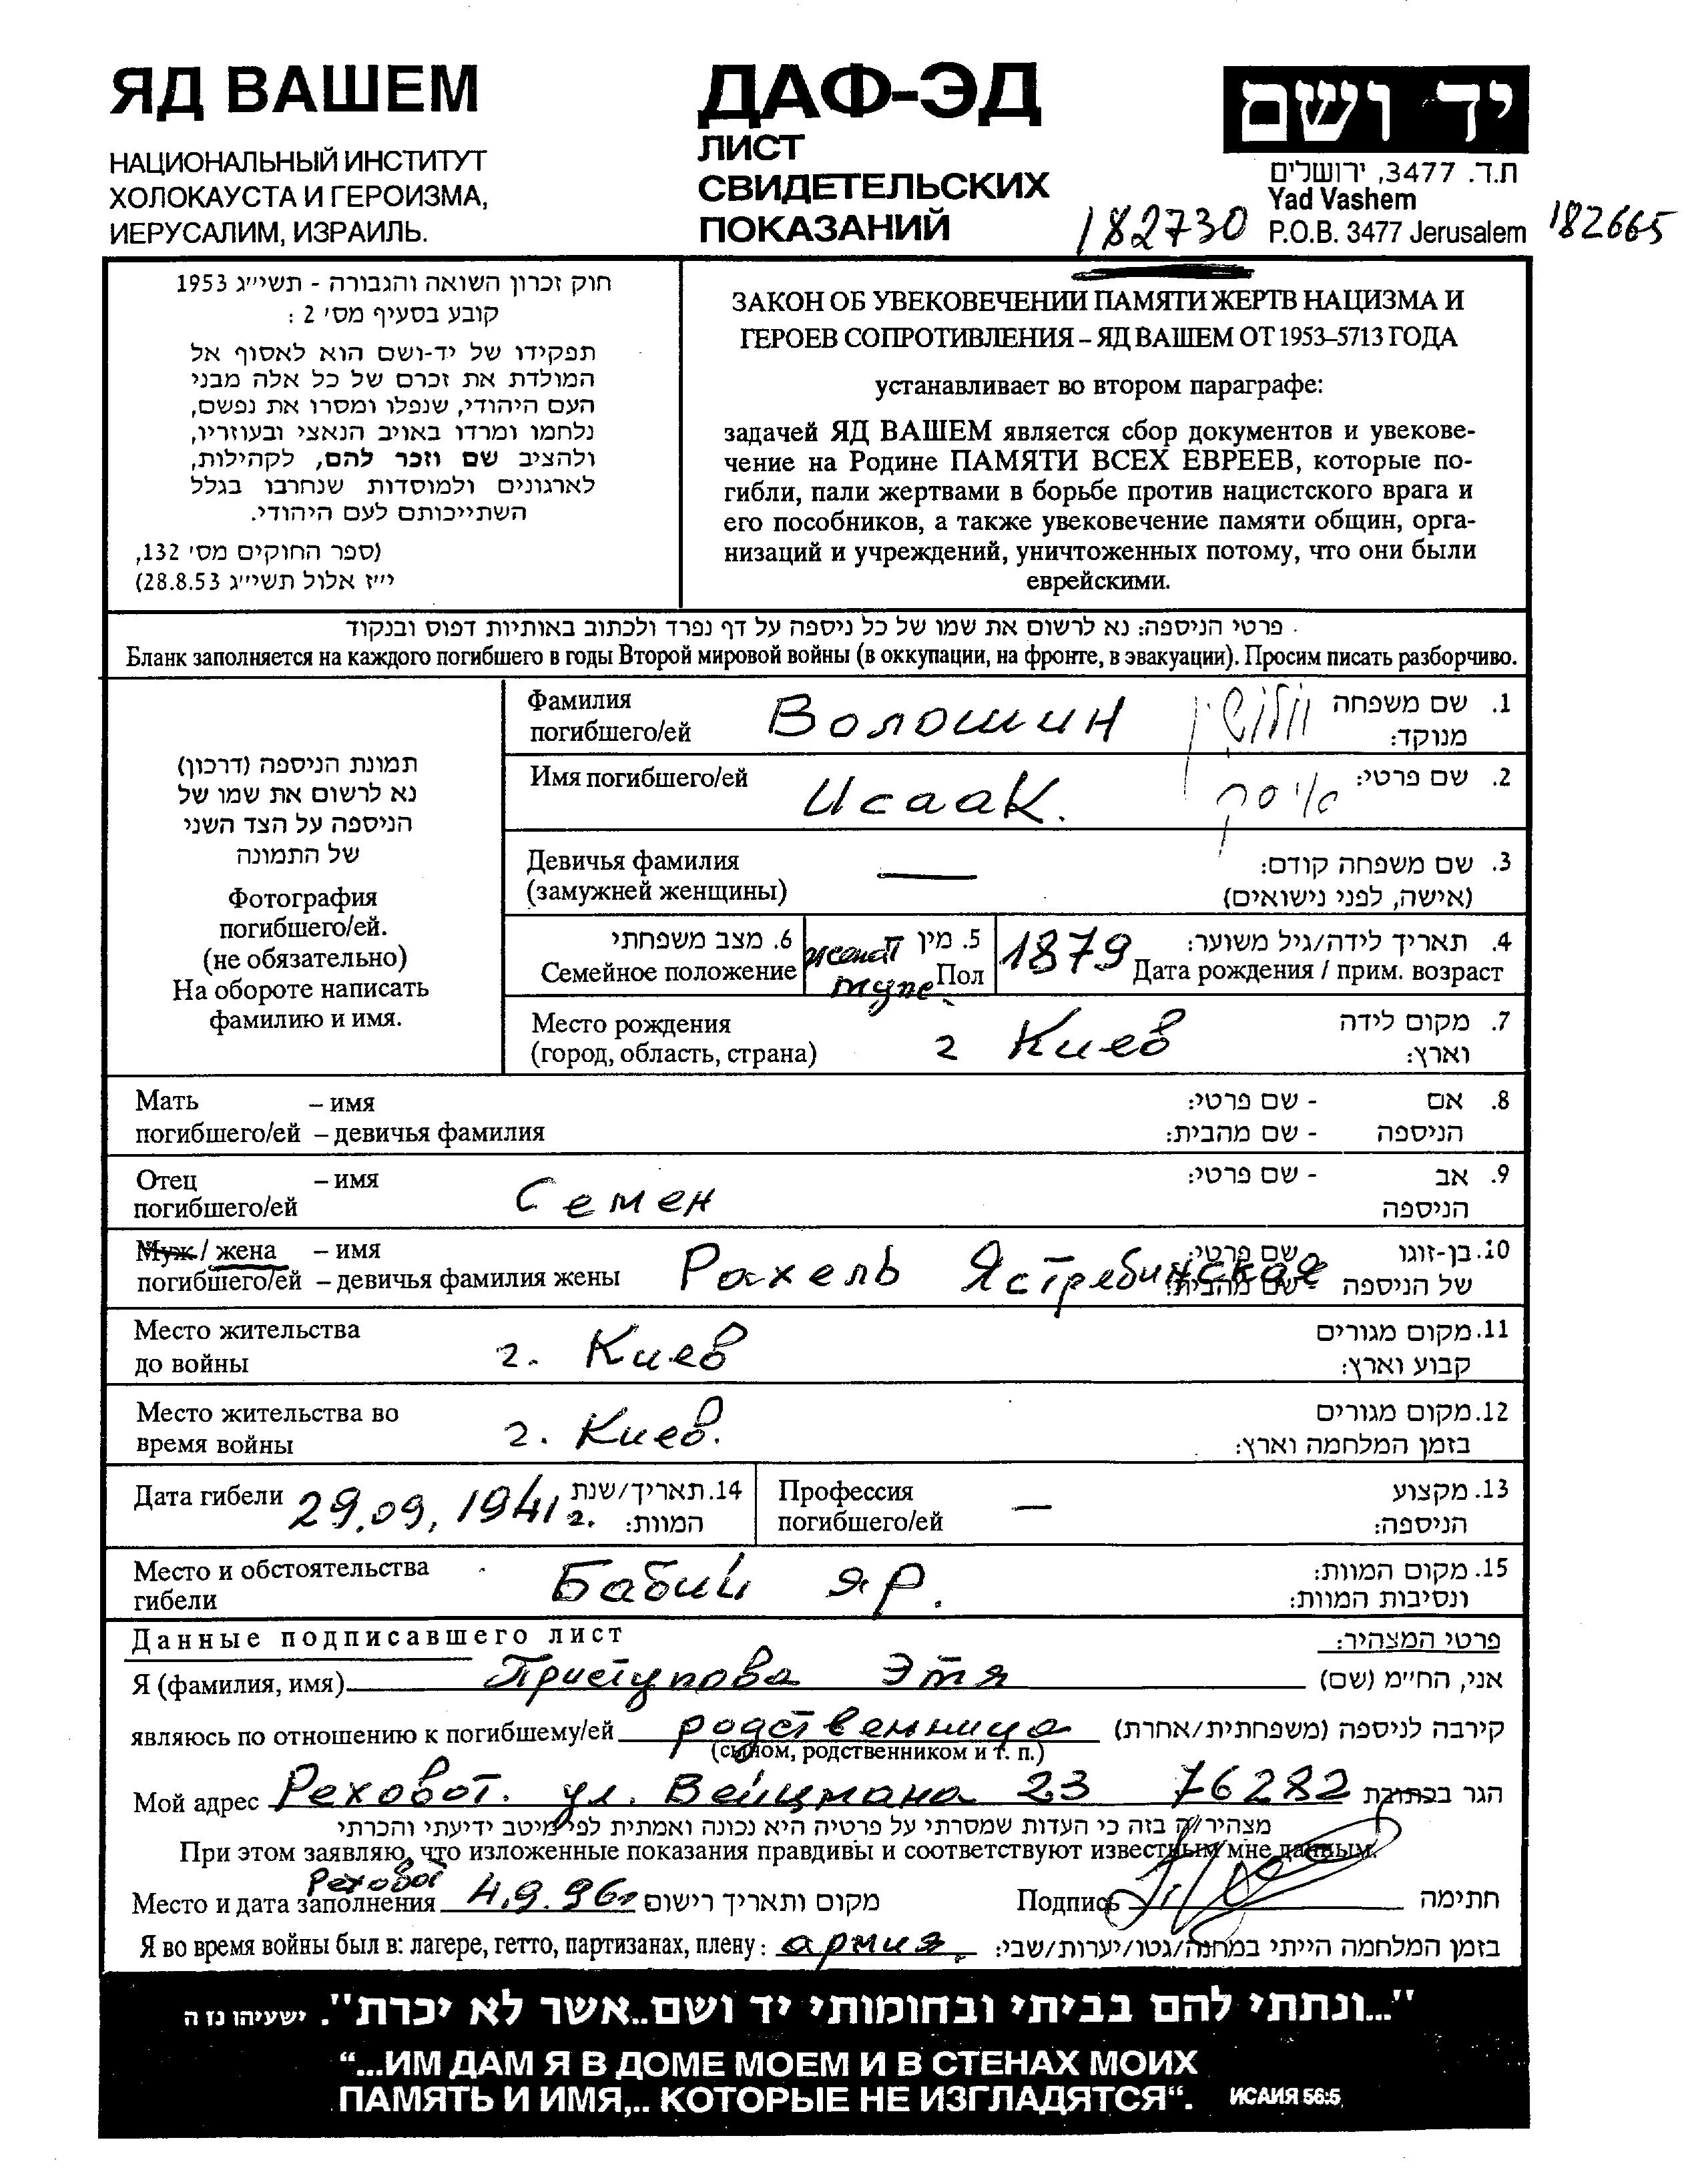 ЯД ВАШЕМ
НАЦИОНАЛЬНЫЙ ИНСТИТУТ
ХОЛОКАУСТА И ГЕРОИЗМА,
ИЕРУСАЛИМ, ИЗРАИЛЬ.
ДАФ-ЭД
ЛИСТ
СВИДЕТЕЛЬСКИХ
ПОКАЗАНИЙ
יד ושם
ת.ד. 3477, ירושלים
Yad Vashem
182730 P.O.B. 3477 Jerusalem 182665
חוק זכרון השואה והגבורה - תשי״ג 1953
קובע בסעיף מס׳ 2 :
תפקידו של יד-ושם הוא לאסוף אל
המולדת את זכרם של כל אלה מבני
העם היהודי, שנפלו ומסרו את נפשם,
נלחמו ומרדו באויב הנאצי ובעוזריו,
ולהציב שם וזכר להם, לקהילות,
לארגונים ולמוסדות שנחרבו בגלל
השתייכותם לעם היהודי.
(ספר החוקים מס׳ 132,
י״ז אלול תשי״ג 28.8.53)
ЗАКОН ОБ УВЕКОВЕЧЕНИИ ПАМЯТИ ЖЕРТВ НАЦИЗМА И
ГЕРОЕВ СОПРОТИВЛЕНИЯ – ЯД ВАШЕМ ОТ 1953–5713 ГОДА
устанавливает во втором параграфе:
задачей ЯД ВАШЕМ является сбор документов и увекове-
чение на Родине ПАМЯТИ ВСЕХ ЕВРЕЕВ, которые по-
гибли, пали жертвами в борьбе против нацистского врага и
его пособников, а также увековечение памяти общин, орга-
низаций и учреждений, уничтоженных потому, что они были
еврейскими.
פרטי הניספה: נא לרשום את שמו של כל ניספה על דף נפרד ולכתוב באותיות דפוס ובנקוד
Бланк заполняется на каждого погибшего в годы Второй мировой войны (в оккупации, на фронте, в эвакуации). Просим писать разборчиво.
תמונת הניספה (דרכון)
נא לרשום את שמו של
הניספה על הצד השני
של התמונה
Фотография
погибшего/ей.
(не обязательно)
На обороте написать
фамилию и имя.
Фамилия
погибшего/ей Волошин וולושין
1. שם משפחה
מנוקד:
Имя погибшего/ей Исаак. אייסק 2. שם פרטי:
Девичья фамилия
(замужней женщины) —
3. שם משפחה קודם:
(אישה, לפני נישואים)
6. מצב משפחתי
Семейное положение
5. מין
Пол
женат
муж.
1879
4. תאריך לידה/גיל משוער:
Дата рождения / прим. возраст
Место рождения
(город, область, страна) г Киев
7. מקום לידה
וארץ:
Мать – имя
погибшего/ей – девичья фамилия
8. אם - שם פרטי:
הניספה - שם מהבית:
Отец – имя
погибшего/ей Семен
9. אב - שם פרטי:
הניספה
Муж / жена – имя
погибшего/ей – девичья фамилия жены Рахель Ястребинская
10. בן-זוגו - שם פרטי:
של הניספה - שם מהבית:
Место жительства
до войны г. Киев
11. מקום מגורים
קבוע וארץ:
Место жительства во
время войны г. Киев.
12. מקום מגורים
בזמן המלחמה וארץ:
Дата гибели 29.09, 1941 г.
14. תאריך/שנת
המוות:
Профессия
погибшего/ей —
13. מקצוע
הניספה:
Место и обстоятельства
гибели Бабий яр.
15. מקום המוות:
ונסיבות המוות:
Данные подписавшего лист פרטי המצהיר:
Я (фамилия, имя) Приступова Этя אני, הח״מ (שם)
являюсь по отношению к погибшему/ей родственница קירבה לניספה (משפחתית/אחרת)
(сыном, родственником и т. п.)
Мой адрес Реховот. ул. Вейцмана 23 76282 הגר בכתובת
מצהיר/ה בזה כי העדות שמסרתי על פרטיה היא נכונה ואמתית לפי מיטב ידיעתי והכרתי
При этом заявляю, что изложенные показания правдивы и соответствуют известным мне данным.
Реховот
Место и дата заполнения 4.9.96г מקום ותאריך רישום Подпись חתימה
Я во время войны был в: лагере, гетто, партизанах, плену: армия. בזמן המלחמה הייתי במחנה/גטו/יערות/שבי:
"...ונתתי להם בביתי ובחומותי יד ושם..אשר לא יכרת". ישעיהו נז ה
“...ИМ ДАМ Я В ДОМЕ МОЕМ И В СТЕНАХ МОИХ
ПАМЯТЬ И ИМЯ,.. КОТОРЫЕ НЕ ИЗГЛАДЯТСЯ“. ИСАИЯ 56:5